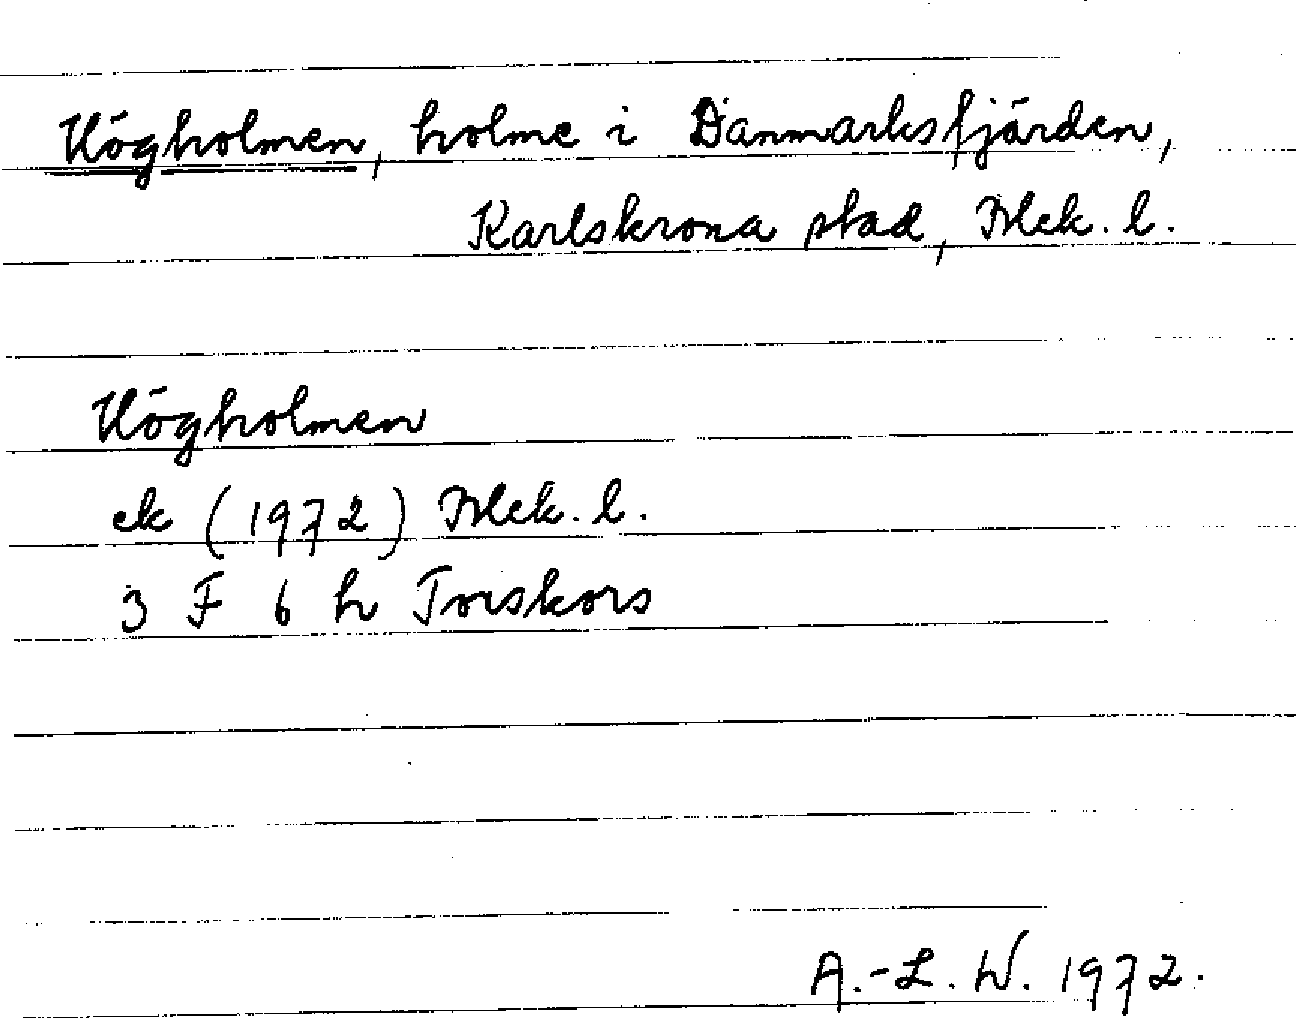 Högholmen, holme i Danmarksfjärden,
Karlskrona stad, Blek. l.
Högholmen
ek (1972) Blek. l.
3 F 6 h Torskors
A.-L. W. 1972.